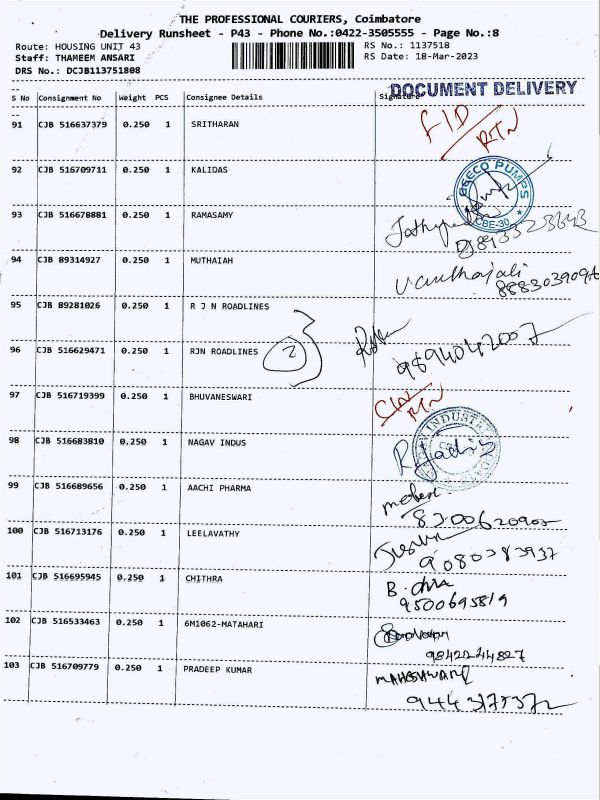 THE PROFESSIONAL COURIERS, Coimbatore
Delivery Runsheet - P43 - Phone No.:0422-3505555 - Page No.:8
Route: HOUSING UNIT 43 RS No.: 1137518
Staff: THAMEEM ANSARI RS Date: 18-Mar-2023
DRS No.: DCJB113751808
DOCUMENT DELIVERY
S No Consignment No Weight PCS Consignee Details Signature
91 CJB 516637379 0.250 1 SRITHARAN RTN
92 CJB 516709711 0.250 1 KALIDAS GEECO PUMPS CBE-30
93 CJB 516678881 0.250 1 RAMASAMY
94 CJB 89314927 0.250 1 MUTHAIAH
95 CJB 89281026 0.250 1 R J N ROADLINES
96 CJB 516629471 0.250 1 RJN ROADLINES 2 9894042007
97 CJB 516719399 0.250 1 BHUVANESWARI RTN
98 CJB 516683810 0.250 1 NAGAV INDUS
99 CJB 516689656 0.250 1 AACHI PHARMA
100 CJB 516713176 0.250 1 LEELAVATHY 9080383937
101 CJB 516695945 0.250 1 CHITHRA 9500695819
102 CJB 516533463 0.250 1 6M1062-MATAHARI 9842244827
103 CJB 516709779 0.250 1 PRADEEP KUMAR